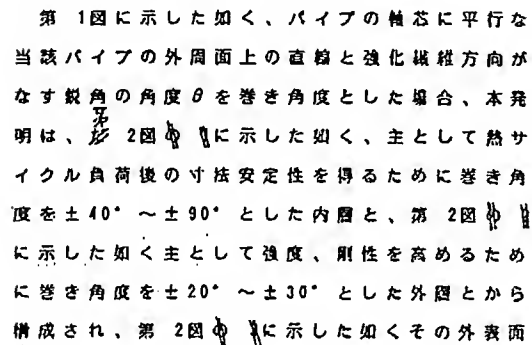 第 1図に示した如く、パイプの軸芯に平行な
当該パイプの外周面上の直線と強化繊維方向が
なす鋭角の角度θを巻き角度とした場合、本発
明は、第 2図 に示した如く、主として熱サ
イクル負荷後の寸法安定性を得るために巻き角
度を±40°～±90°とした内層と、第 2図
に示した如く主として強度、剛性を高めるため
に巻き角度を±20°～±30°とした外層とから
構成され、第 2図 に示した如くその外表面